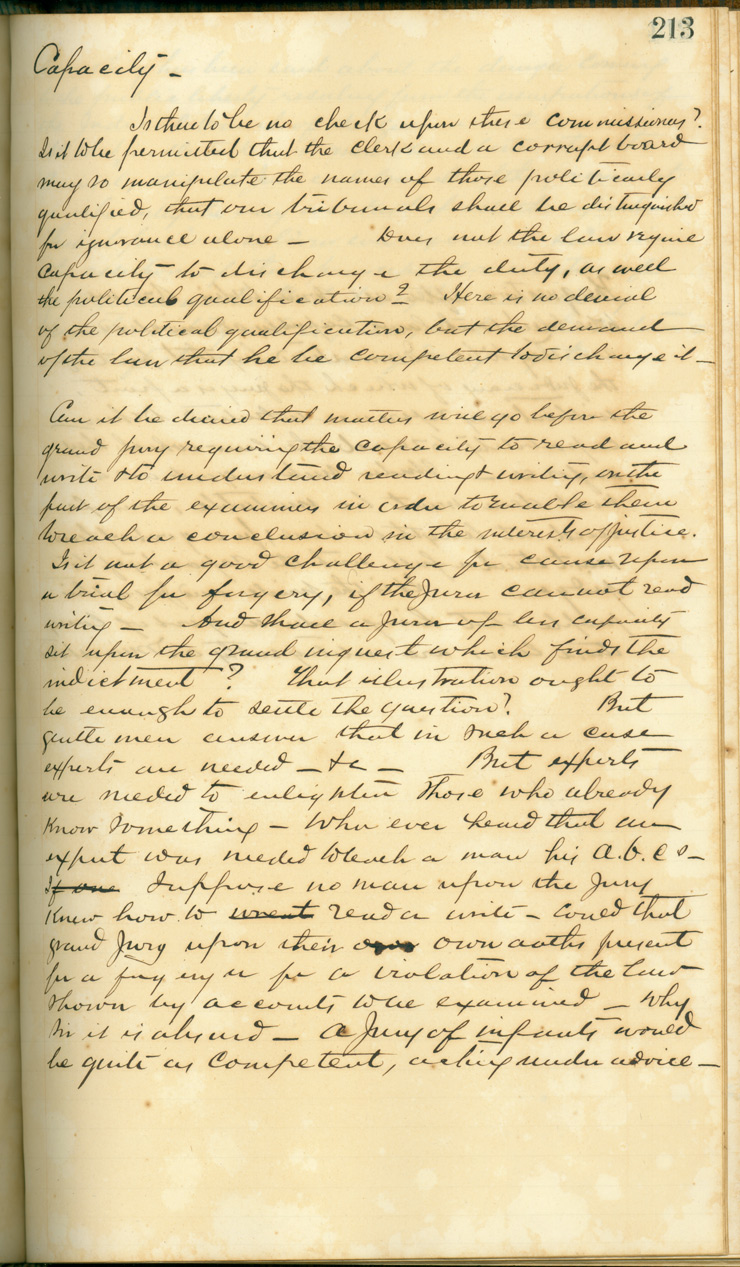 213
Capacity -
Is there to be no check upon these commissioners?
Is it to be permitted that the clerk and a corrupt board
may so manipulate the names of those politically
qualified, that our tribunals shall be distinguished
for ignorance alone - Does not the law require
capacity to discharge the duty, as well
the political qualification? Here is no denial
of the political qualification, but the demand
of the law that he be competent to discharge it -
Can it be denied that matters will go before the
grand jury requiring the capacity to read and
write & to understand reading & writing, on the
part of the examiners in order to enable them
to reach a conclusion in the interests of justice.
Is it not a good challenge for cause upon
a trial for forgery, if the Juror cannot read
writing - And shall a Juror of less capacity
sit upon the grand inquest which finds the
indictment? That illustration ought to
be enough to settle the question? But
gentlemen answer that in such a case
experts are needed - &c - But experts
are needed to enlighten those who already
know something - Who ever heard that an
expert was needed to teach a man his A.B.Cs -
If one Suppose no man upon the Jury
knew how to read or write - could that
grand Jury upon their own oaths present
for a forgery or for a violation of the law
shown by accounts to be examined - Why
Sir it is absurd - A Jury of infants would
be quite as competent, acting under advice -